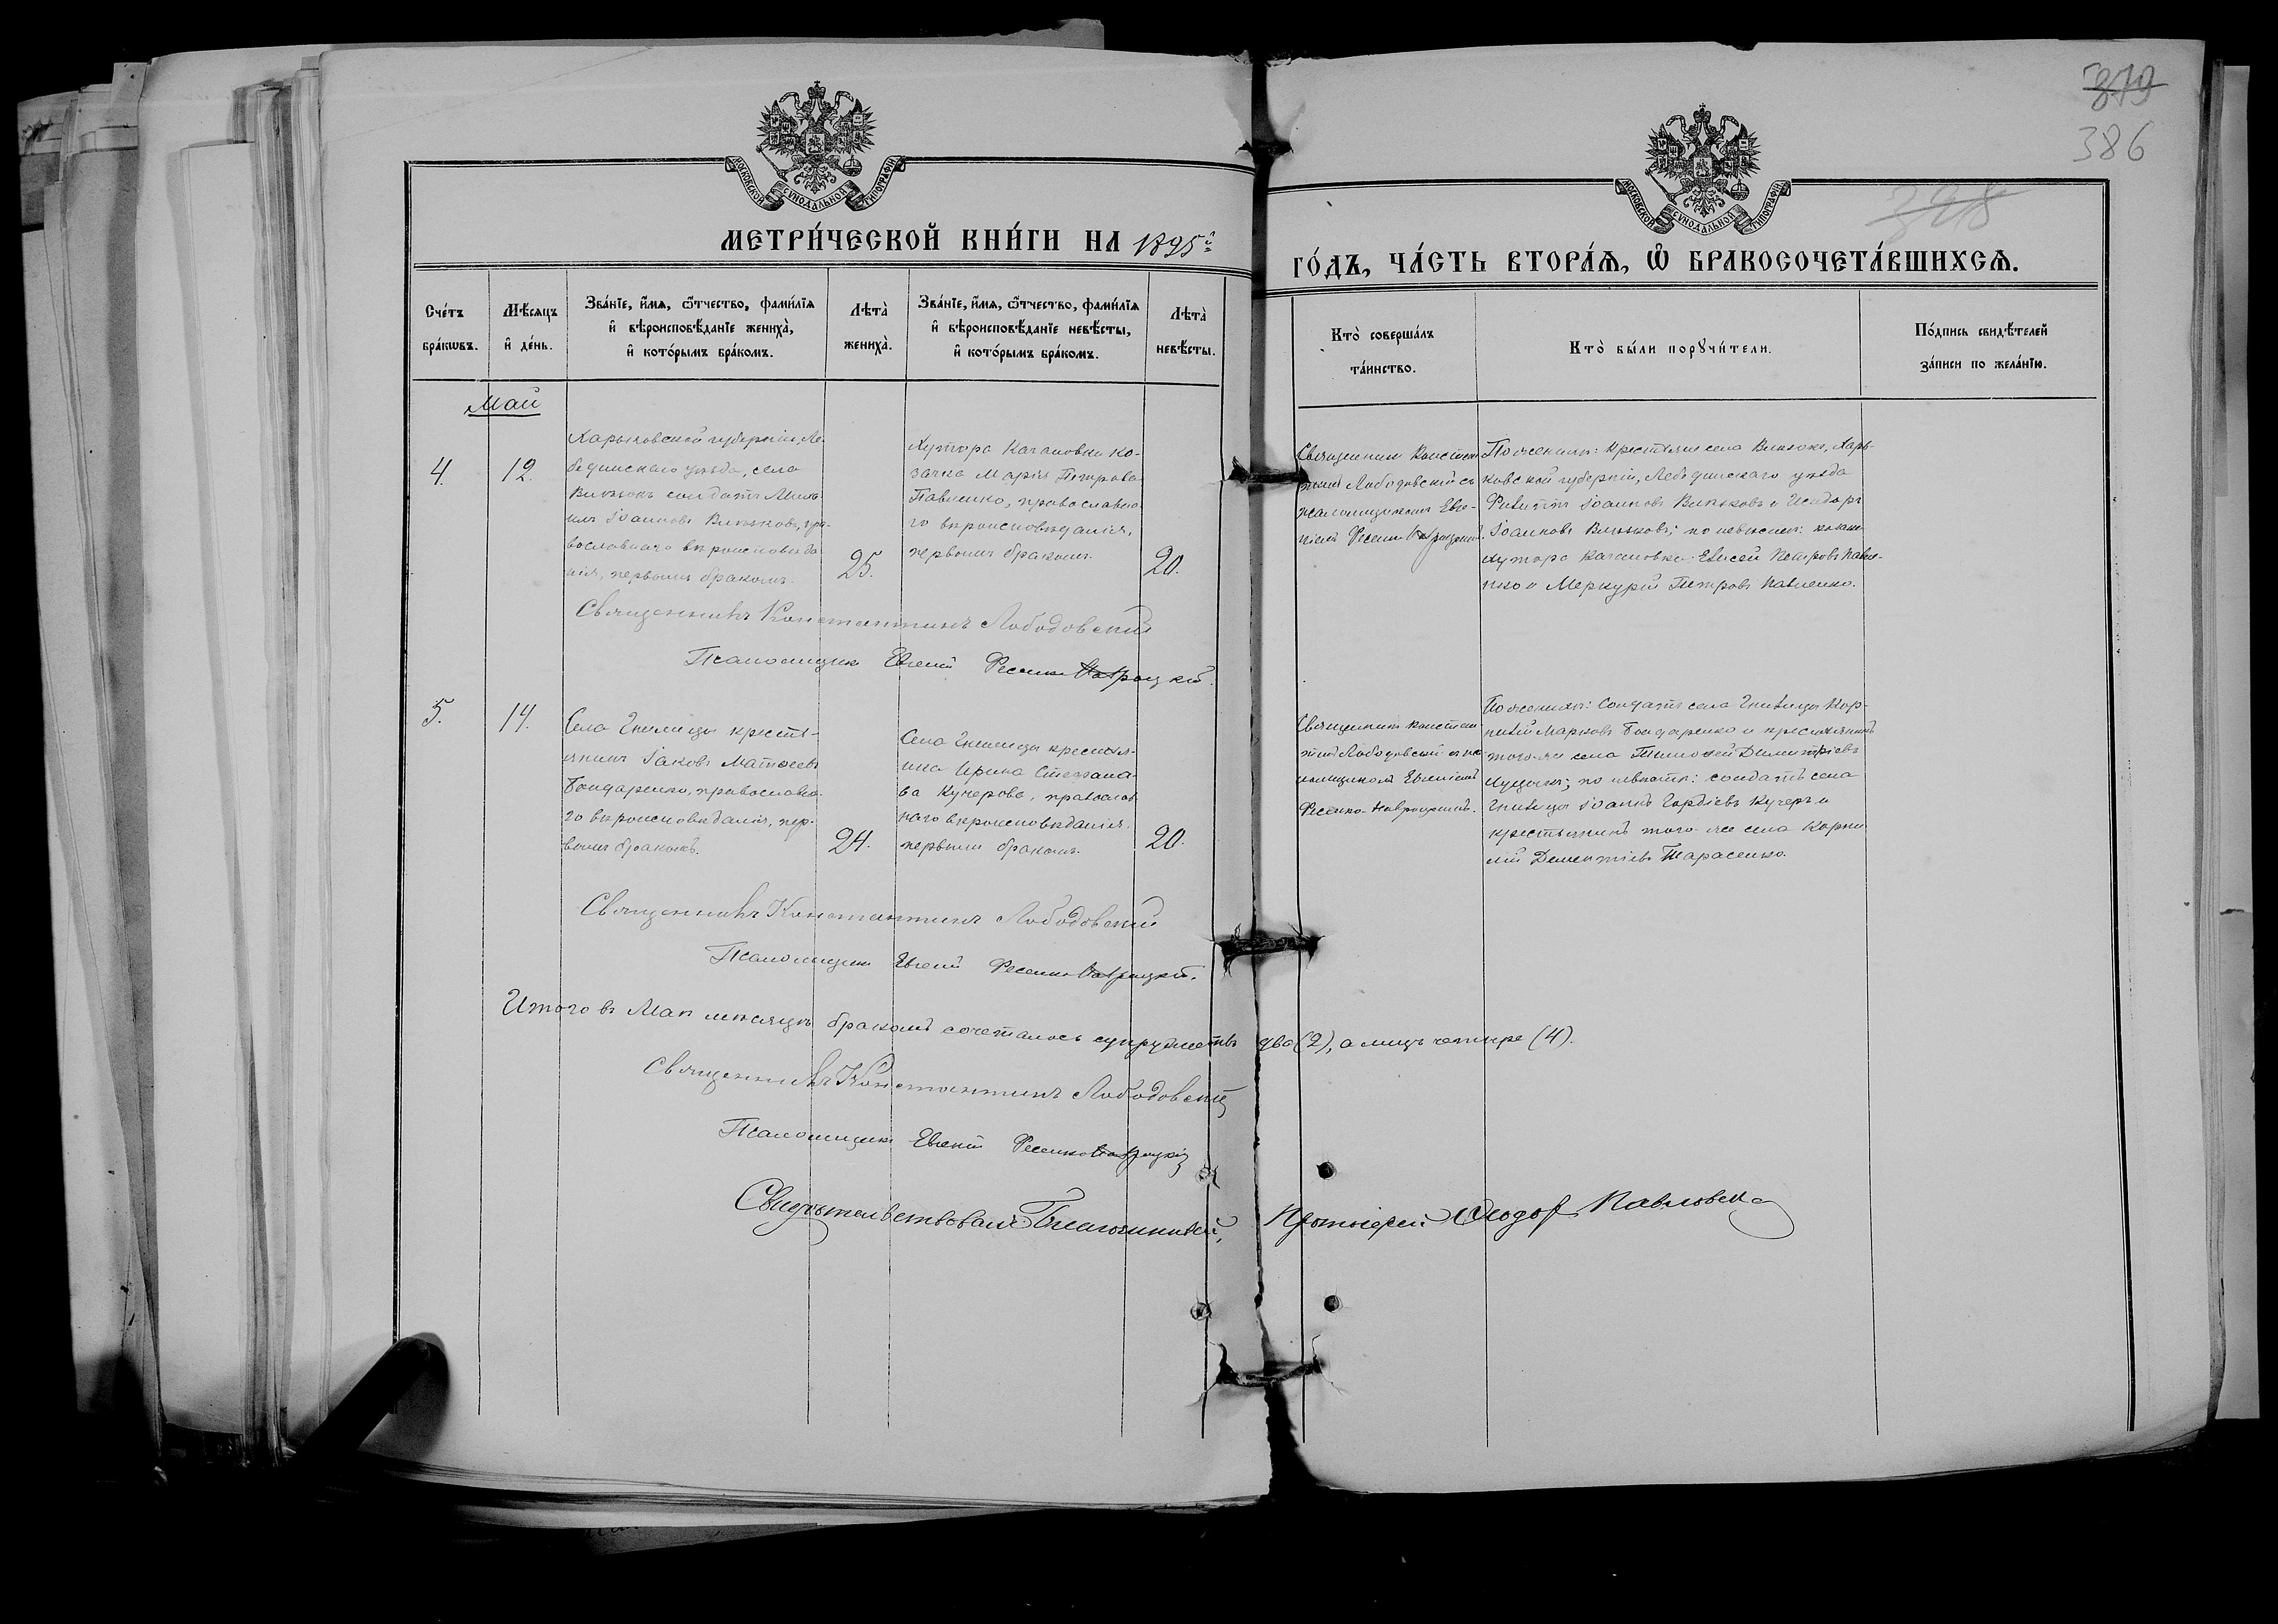 879
386
328
МОСКОВСКОЙ СУНОДАЛЬНОЙ ТИПОГРАФІИ
МОСКОВСКОЙ СУНОДАЛЬНОЙ ТИПОГРАФІИ
МЕТРИ́ЧЕСКОЙ КНИ́ГИ НА 1895й
ГО́ДЪ, ЧА́СТЬ ВТОРА́Я, Ѽ БРАКОСОЧЕТА́ВШИХСЯ.
Сче́тъ бра́кѡвъ.
Мѣ́сяцъ и҆ де́нь.
Зва́нїе, и҆́мя, ѻ҆́тчество, фами́лїя
и҆ вѣроисповѣ́данїе жениха̀,
и҆ кото́рымъ бра́комъ.
Лѣта̀ жениха̀.
Зва́нїе, и҆́мя, ѻ҆́тчество, фами́лїя
и҆ вѣроисповѣ́данїе невѣ́сты,
и҆ кото́рымъ бра́комъ.
Лѣта̀ невѣ́сты.
Кто̀ соверша́лъ
та́инство.
Кто̀ бы́ли порꙋчи́тели.
По́дпись свидѣ́телей
за́писи по жела́нїю.
Май
4.
12.
Харьковской губерніи, Ле-
бединскаго уѣзда, села
солдатъ
Іоанновъ пра-
вославнаго вѣроисповѣда-
нія, первымъ бракомъ.
25.
Хутора Качановки ко-
зачка Марія Петрова
Павленко, православна-
го вѣроисповѣданія,
первымъ бракомъ.
20.
Священникъ Констан-
тинъ Лободовскій съ
псаломщикомъ Евге-
ніемъ Фесенко-Навроцкимъ.
По женихѣ: крестьяне села Харь-
ковской губерніи, Лебединскаго уѣзда
Іоанновъ и Исидоръ
Іоанновъ по невѣстѣ: козаки
хутора Качановки Елисей Петровъ Павле-
нко и Меркурій Петровъ Павленко.
Священникъ Константинъ Лободовскій
Псаломщикъ Евгеній Фесенко-Навроцкій.
5.
14.
Села Гнилицы кресть-
янинъ Іаковъ Матѳеевъ
Бондаренко, православна-
го вѣроисповѣданія, пер-
вымъ бракомъ.
24.
Села Гнилицы крестьян-
ка Ирина Стефано-
ва Кучерова, православ-
наго вѣроисповѣданія,
первымъ бракомъ.
20.
Священникъ Констан-
тинъ Лободовскій съ пса-
ломщикомъ Евгеніемъ
Фесенко-Навроцкимъ.
По женихѣ: Солдатъ села Гнилицы Кор-
нилій Марковъ Бондаренко и крестьянинъ
того-же села Тимоѳей Димитріевъ
по невѣстѣ: солдатъ села
Гнилицы Іоаннъ Гордіевъ Кучеръ и
крестьянинъ того-же села Корни-
лій Дементіевъ Тарасенко.
Священникъ Константинъ Лободовскій
Псаломщикъ Евгеній Фесенко-Навроцкій.
Итого въ Маѣ мѣсяцѣ бракомъ сочеталось супружествъ два (2), а лицъ четыре (4).
Священникъ Константинъ Лободовскій
Псаломщикъ Евгеній Фесенко-Навроцкій
Свидѣтельствовалъ Благочинный, Протоіерей Ѳеодоръ Павловскій